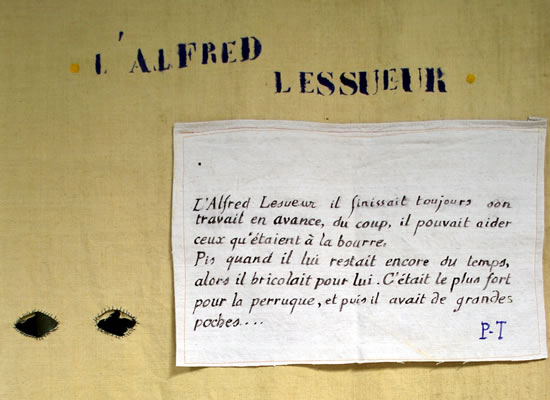 L'ALFRED
LESSUEUR
L'Alfred Lesueur il finissait toujours son
travail en avance, du coup, il pouvait aider
ceux qu'étaient à la bourre.
Pis quand il lui restait encore du temps,
alors il bricolait pour lui. C'était le plus fort
pour la perruque, et puis il avait de grandes
poches....
P-T